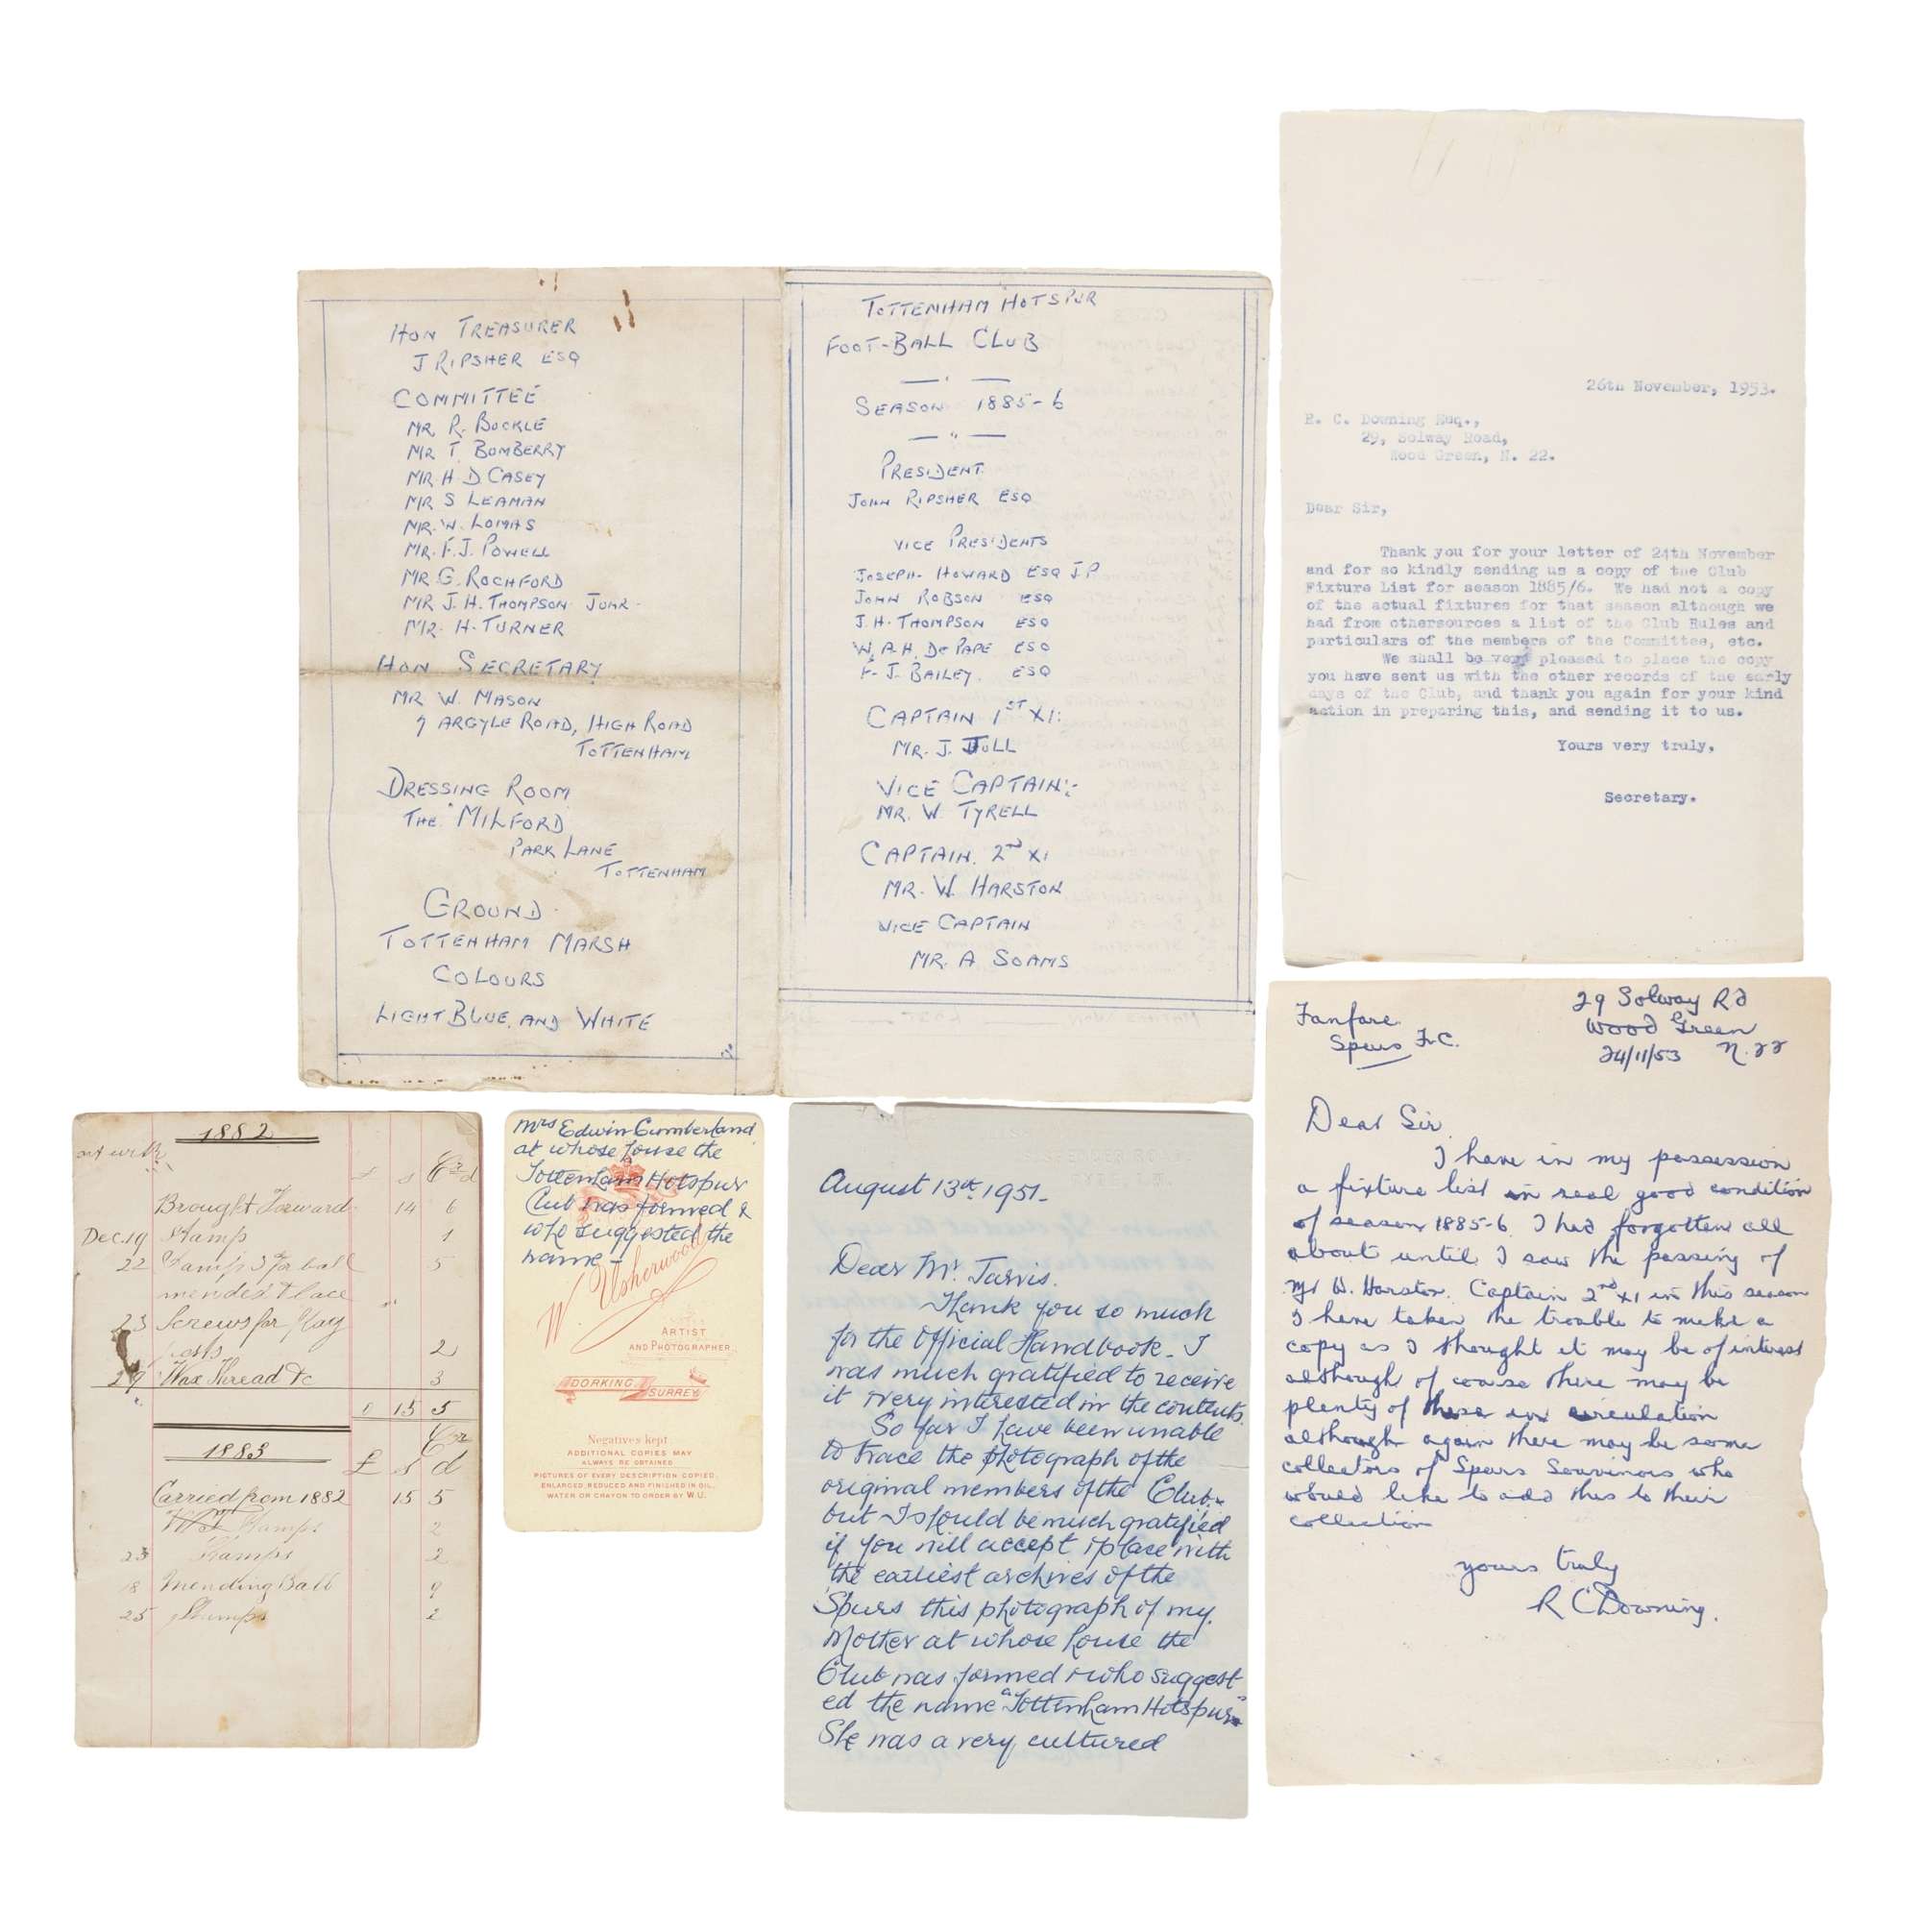 HON TREASURER
J RIPSHER ESQ
COMMITTEE
MR. R. BUCKLE
MR T. BOMBERRY
MR. H. D CASEY
MR S LEAMAN
MR. W. LOMAS
MR. F. J. POWELL
MR G. ROCHFORD
MR J. H. THOMPSON JUNR.
MR. H. TURNER
HON SECRETARY
MR W. MASON
9 ARGYLE ROAD, HIGH ROAD
TOTTENHAM
DRESSING ROOM
THE MILFORD
PARK LANE
TOTTENHAM
GROUND
TOTTENHAM MARSH
COLOURS
LIGHT BLUE, AND WHITE
TOTTENHAM HOTSPUR
FOOT-BALL CLUB
SEASON 1885-6
PRESIDENT
JOHN RIPSHER ESQ
VICE PRESIDENTS
JOSEPH HOWARD ESQ J.P
JOHN ROBSON ESQ
J. H. THOMPSON ESQ
W. A. H. DE PAPE ESQ
F. J. BAILEY. ESQ
CAPTAIN 1ST XI:
MR. J. JULL
VICE CAPTAIN:-
MR. W. TYRELL
CAPTAIN. 2ND XI
MR. W. HARSTON
VICE CAPTAIN
MR. A SOAMS
26th November, 1953.
R. C. Downing Esq.,
29, Solway Road,
Wood Green, N. 22.
Dear Sir,
Thank you for your letter of 24th November
and for so kindly sending us a copy of the Club
Fixture List for season 1885/6. We had not a copy
of the actual fixtures for that season although we
had from othersources a list of the Club Rules and
particulars of the members of the Committee, etc.
We shall be very pleased to place the copy
you have sent us with the other records of the early
days of the Club, and thank you again for your kind
action in preparing this, and sending it to us.
Yours very truly,
Secretary.
1882
£ s Cr d
Brought Forward 14 6
Dec. 19 Stamp 1
22 Lamp 3 for ball 5
mended & lace
23 Screws for flag
posts 2
29 Wax Thread &c 3
0 15 5
1883 Cr
£ s d
Carried from 1882 15 5
Stamps 2
23 Stamps 2
18 Mending Ball 9
25 Stamps 2
Mrs Edwin Cumberland
at whose house the
Tottenham Hotspur
Club was formed &
who suggested the
name -
W. Usherwood
ARTIST
AND PHOTOGRAPHER
DORKING. SURREY
Negatives kept
ADDITIONAL COPIES MAY
ALWAYS BE OBTAINED
PICTURES OF EVERY DESCRIPTION COPIED,
ENLARGED, REDUCED AND FINISHED IN OIL,
WATER OR CRAYON TO ORDER BY W.U.
August 13th. 1951.
Dear Mr. Jarvis.
Thank you so much
for the Official Handbook. I
was much gratified to receive
it & very interested in the contents.
So far I have been unable
to trace the photograph of the
original members of the Club.
but I should be much gratified
if you will accept & place with
the earliest archives of the
Spurs this photograph of my
Mother at whose house the
Club was formed & who suggest
ed the name "Tottenham Hotspur"
She was a very cultured
Fanfare
Spurs F.C.
29 Solway Rd
Wood Green
24/11/53 N. 22
Dear Sir
I have in my possession
a fixture list in real good condition
of season 1885-6. I had forgotten all
about until I saw the passing of
Mr W. Harston. Captain 2nd XI in this season
I have taken the trouble to make a
copy as I thought it may be of interest
although of course there may be
plenty of these in circulation
although again there may be some
collectors of Spurs Souvinors who
would like to add this to their
collection
yours truly
R C Downing.